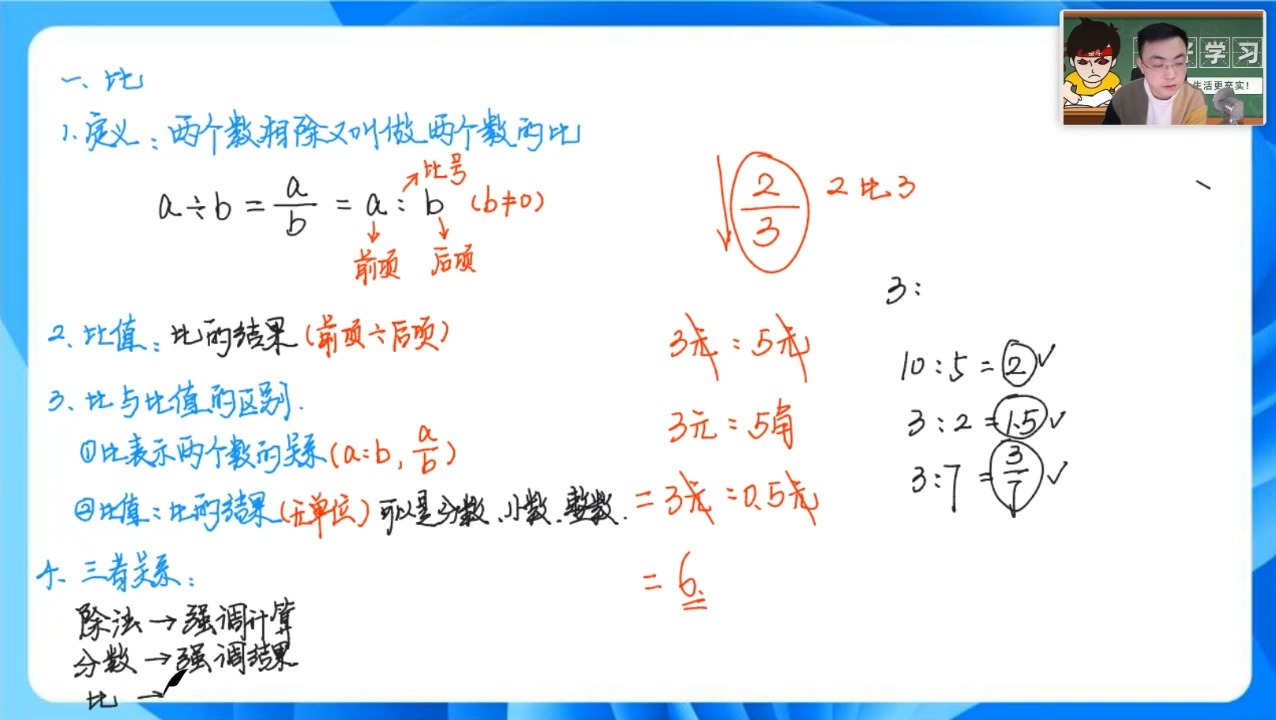 一、比
1、定义：两个数相除又叫做两个数的比
a÷b = a/b = a : b (b≠0)
比号
前项 后项
2、比值：比的结果(前项÷后项)
3、比与比值的区别.
①比表示两个数的关系(a:b, a/b)
②比值：比的结果(无单位)可以是分数、小数、整数.
4、三者关系：
除法→强调计算
分数→强调结果
比→
2/3 2比3
3元 : 5元
3元 : 5角
= 3元 : 0.5元
= 6.
3 :
10 : 5 = 2 ✓
3 : 2 = 1.5 ✓
3 : 7 = 3/7 ✓
学习
生活更充实！